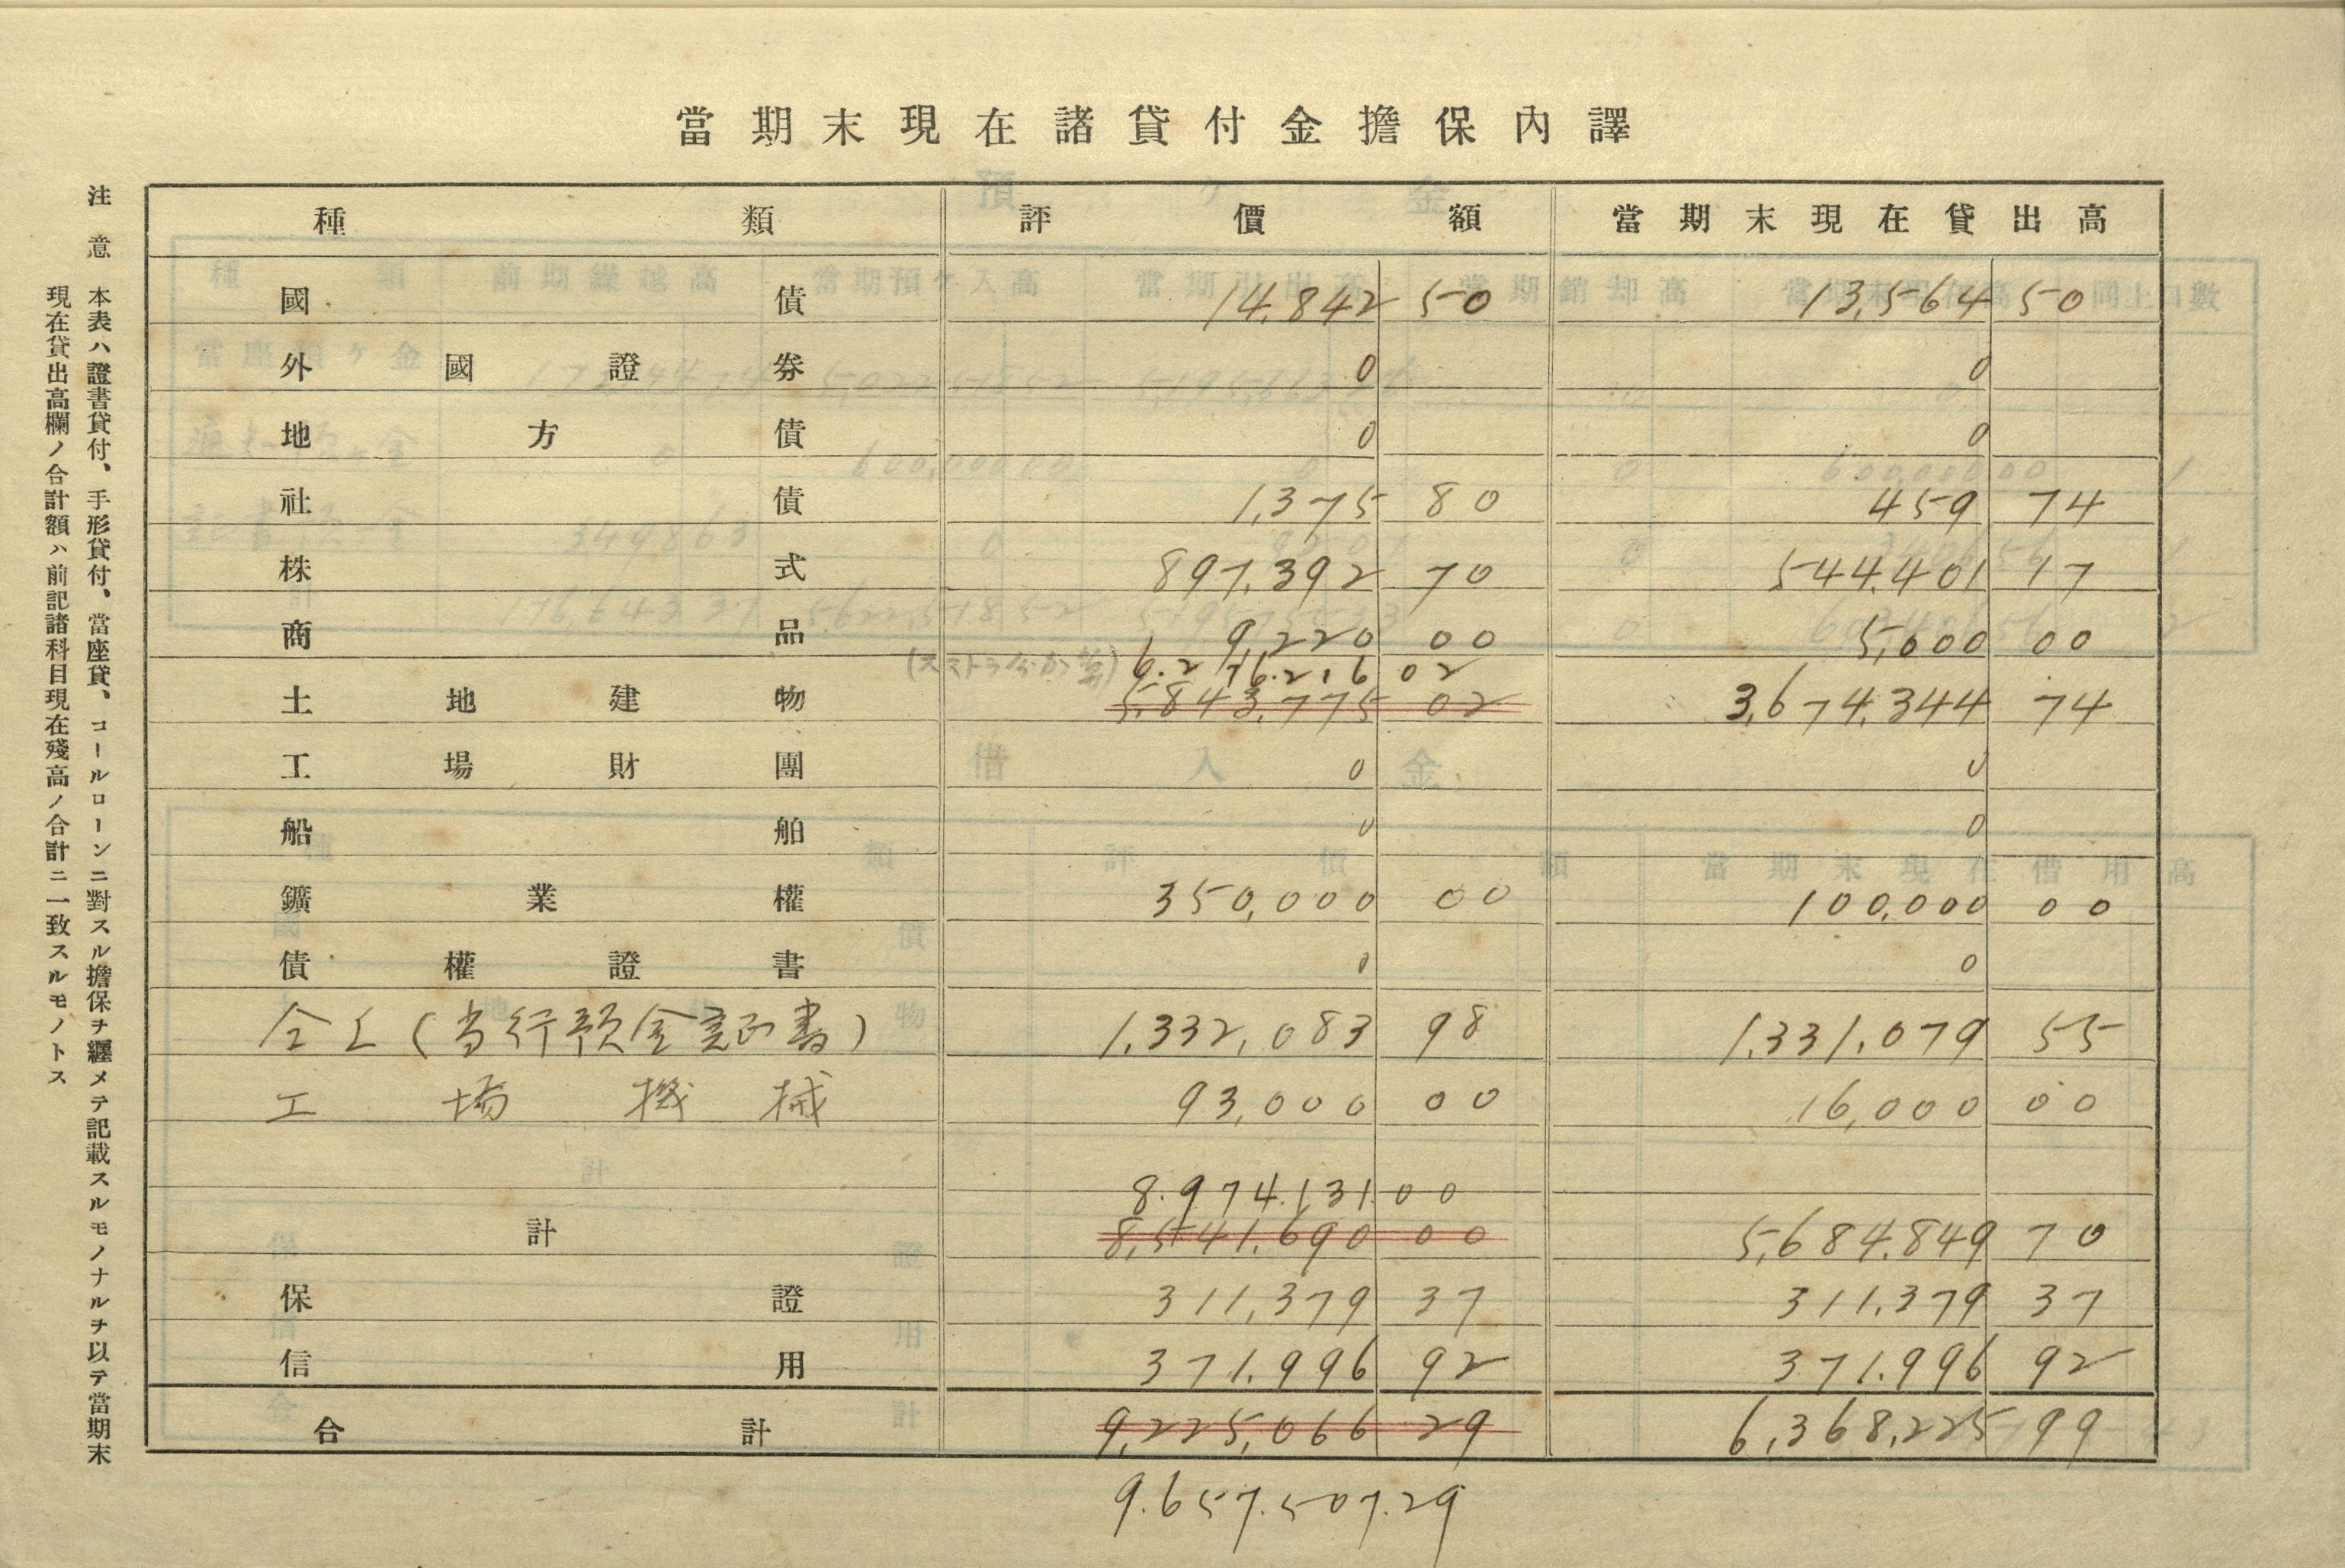 當期末現在諸貸付金擔保內譯
種類 評價額 當期末現在貸出高
國債 14,842 50 13,564 50
外國證券 0 0
地方債 0 0
社債 1,375 80 459 74
株式 897,392 70 544,401 17
商品 9,220 00 5,000 00
6.276.216 02
土地建物 5,843,775 02 3,674,344 74
工場財團 0 0
船舶 0 0
鑛業權 350,000 00 100,000 00
債權證書 0 0
仝上(当行預金証書) 1,332,083 98 1,331,079 55
工場機械 93,000 00 16,000 00
8.974.131 00
計 8,541,690 00 5,684,849 70
保證 311,379 37 311,379 37
信用 371,996 92 371,996 92
合計 9,225,066 29 6,368,225 99
9.657.507.29
注意 本表ハ證書貸付、手形貸付、當座貸、コールローンニ對スル擔保ヲ纒メテ記載スルモノナルヲ以テ當期末
現在貸出高欄ノ合計額ハ前記諸科目現在殘高ノ合計ニ一致スルモノトス